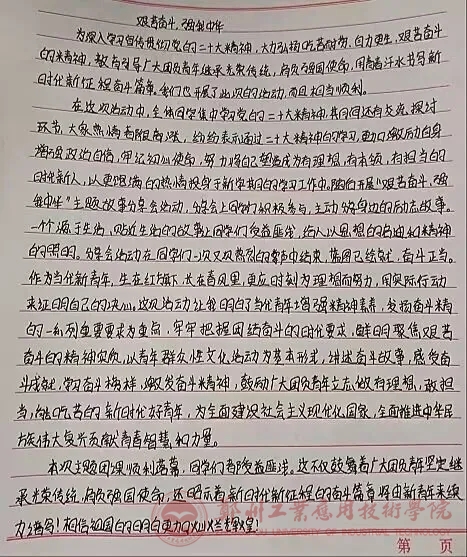 艰苦奋斗，强我中华
为深入学习宣传贯彻党的二十大精神，大力弘扬吃苦耐劳、自力更生、艰苦奋斗
的精神，教育引导广大团员青年继承光荣传统，肩负强国使命，用青春汗水书写新
时代新征程奋斗篇章。我们也开展了此次的活动，而且相当顺利。
在这次活动中，全体同学集中学习党的二十大精神，共同回还有交流探讨
环节，大家热情有限高涨，纷纷表示通过二十大精神的学习，更加激励自身
增强政治自信，牢记初心使命，努力将自己塑造成为有理想，有本领，有担当的
时代新人，以更饱满的热情投身于新学期的学习工作中。随后开展“艰苦奋斗，强
我中华”主题故事分享会活动，分享会上同学们积极参与，主动分享身边的励志故事。
一个个源于生活，贴近生活的故事让同学们受益匪浅，给人以思想的启迪和精神
的照明。分享会活动在同学们一次又一次热烈的掌声中结束，蓝图已绘就，奋斗正当。
作为当代新青年，生在红旗下，长在春风里，更应时刻为理想而努力，用实际行动
来证明自己的决心。这次活动让我明白了当代青年增强精神素养，发扬奋斗精神
的一系列重要要求为重点，牢牢把握团结奋斗的时代要求，鲜明聚焦艰苦
奋斗的精神实质，以青年群众性文化活动为基本形式，讲述奋斗故事，感受奋
斗成就，学习奋斗榜样，激发奋斗精神，鼓励广大团员青年立志做有理想，敢担
当，能吃苦的新时代好青年，为全面建设社会主义现代化国家，全面推进中华民
族伟大复兴贡献青春智慧和力量。
本次主题团课顺利落幕，同学们都受益匪浅。这不仅鼓舞着广大团员青年坚定继
承光荣传统，肩负强国使命，还昭示着新时代新征程的奋斗篇章将由新青年来续
力之谱写！相信祖国的明日更加灿烂辉煌！
郑州工业应用技术学院
第 页